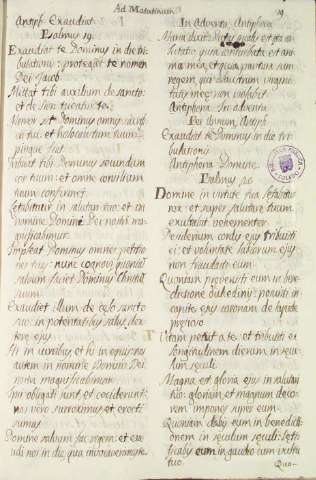 Ad Matutinum
Antiph Exaudiat
Psalmus 19.
Exaudiat te Dominus in die tri-
bulationis: protegat te nomen
Dei Jacob
Mittat tibi auxilium de sancto:
et de Sion tueatur te.
Memor sit Dominus omnis sacrifi-
cii tui: et holocaustum tuum
pingue fiat
Tribuat tibi Dominus secundum
cor tuum: et omne consilium
tuum confirmet
Letabitur in salutari tuo: et in
nomine Domini Dei nostri ma-
gnificabimur
Impleat Dominus omnes petitio-
nes tuas: nunc cognovi quoniam
salvum fecit Dominus Christum
suum.
Exaudiet illum de celo sancto
suo: in potentatibus salus dex-
tere ejus
Hi in curribus et hi in equis: nos
autem in nomine Domini Dei
nostri
Ipsi obligati sunt, et ceciderunt:
nos vero surreximus et erecti
sumus
Domine salvum fac regem: et exau-
di nos in die qua invocaverimus te.
In Adventu Antiphona
et gra
non violabit
Antiphona
Per Annum Antiph
Exaudiat te Dominus in die tri-
bulationis
Antiphona Domine
Psalmus 20
Domine in virtute tua letabitur
rex: et super salutare tuum
exultabit vehementer
Desiderium cordis ejus tribuisti
ei: et voluntate labiorum ejus
non fraudasti eum.
Quoniam prevenisti eum in bene-
dictionibus dulcedinis: posuisti in
capite ejus coronam de lapide
pretioso
Vitam petiit a te: et tribuisti ei
longitudinem dierum in secu-
lum seculi
Magna est gloria ejus in saluta-
ri tuo: gloriam et magnum deco-
rem impones super eum.
Quoniam dabis eum in benedicti-
onem in seculum seculi: leti-
ficabis eum in gaudio cum vultu
tuo.
Quo-